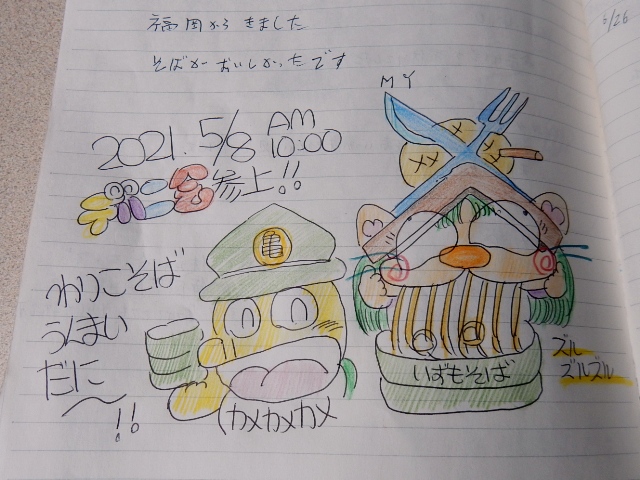 福岡から きました
そばがおいしかったです
5/26
MY
2021. 5/8 AM 10:00
参上!!
わりこそば
うんまい
だに〜!!
亀
(カメカメカメ
いずもそば
ズル
ズルズル